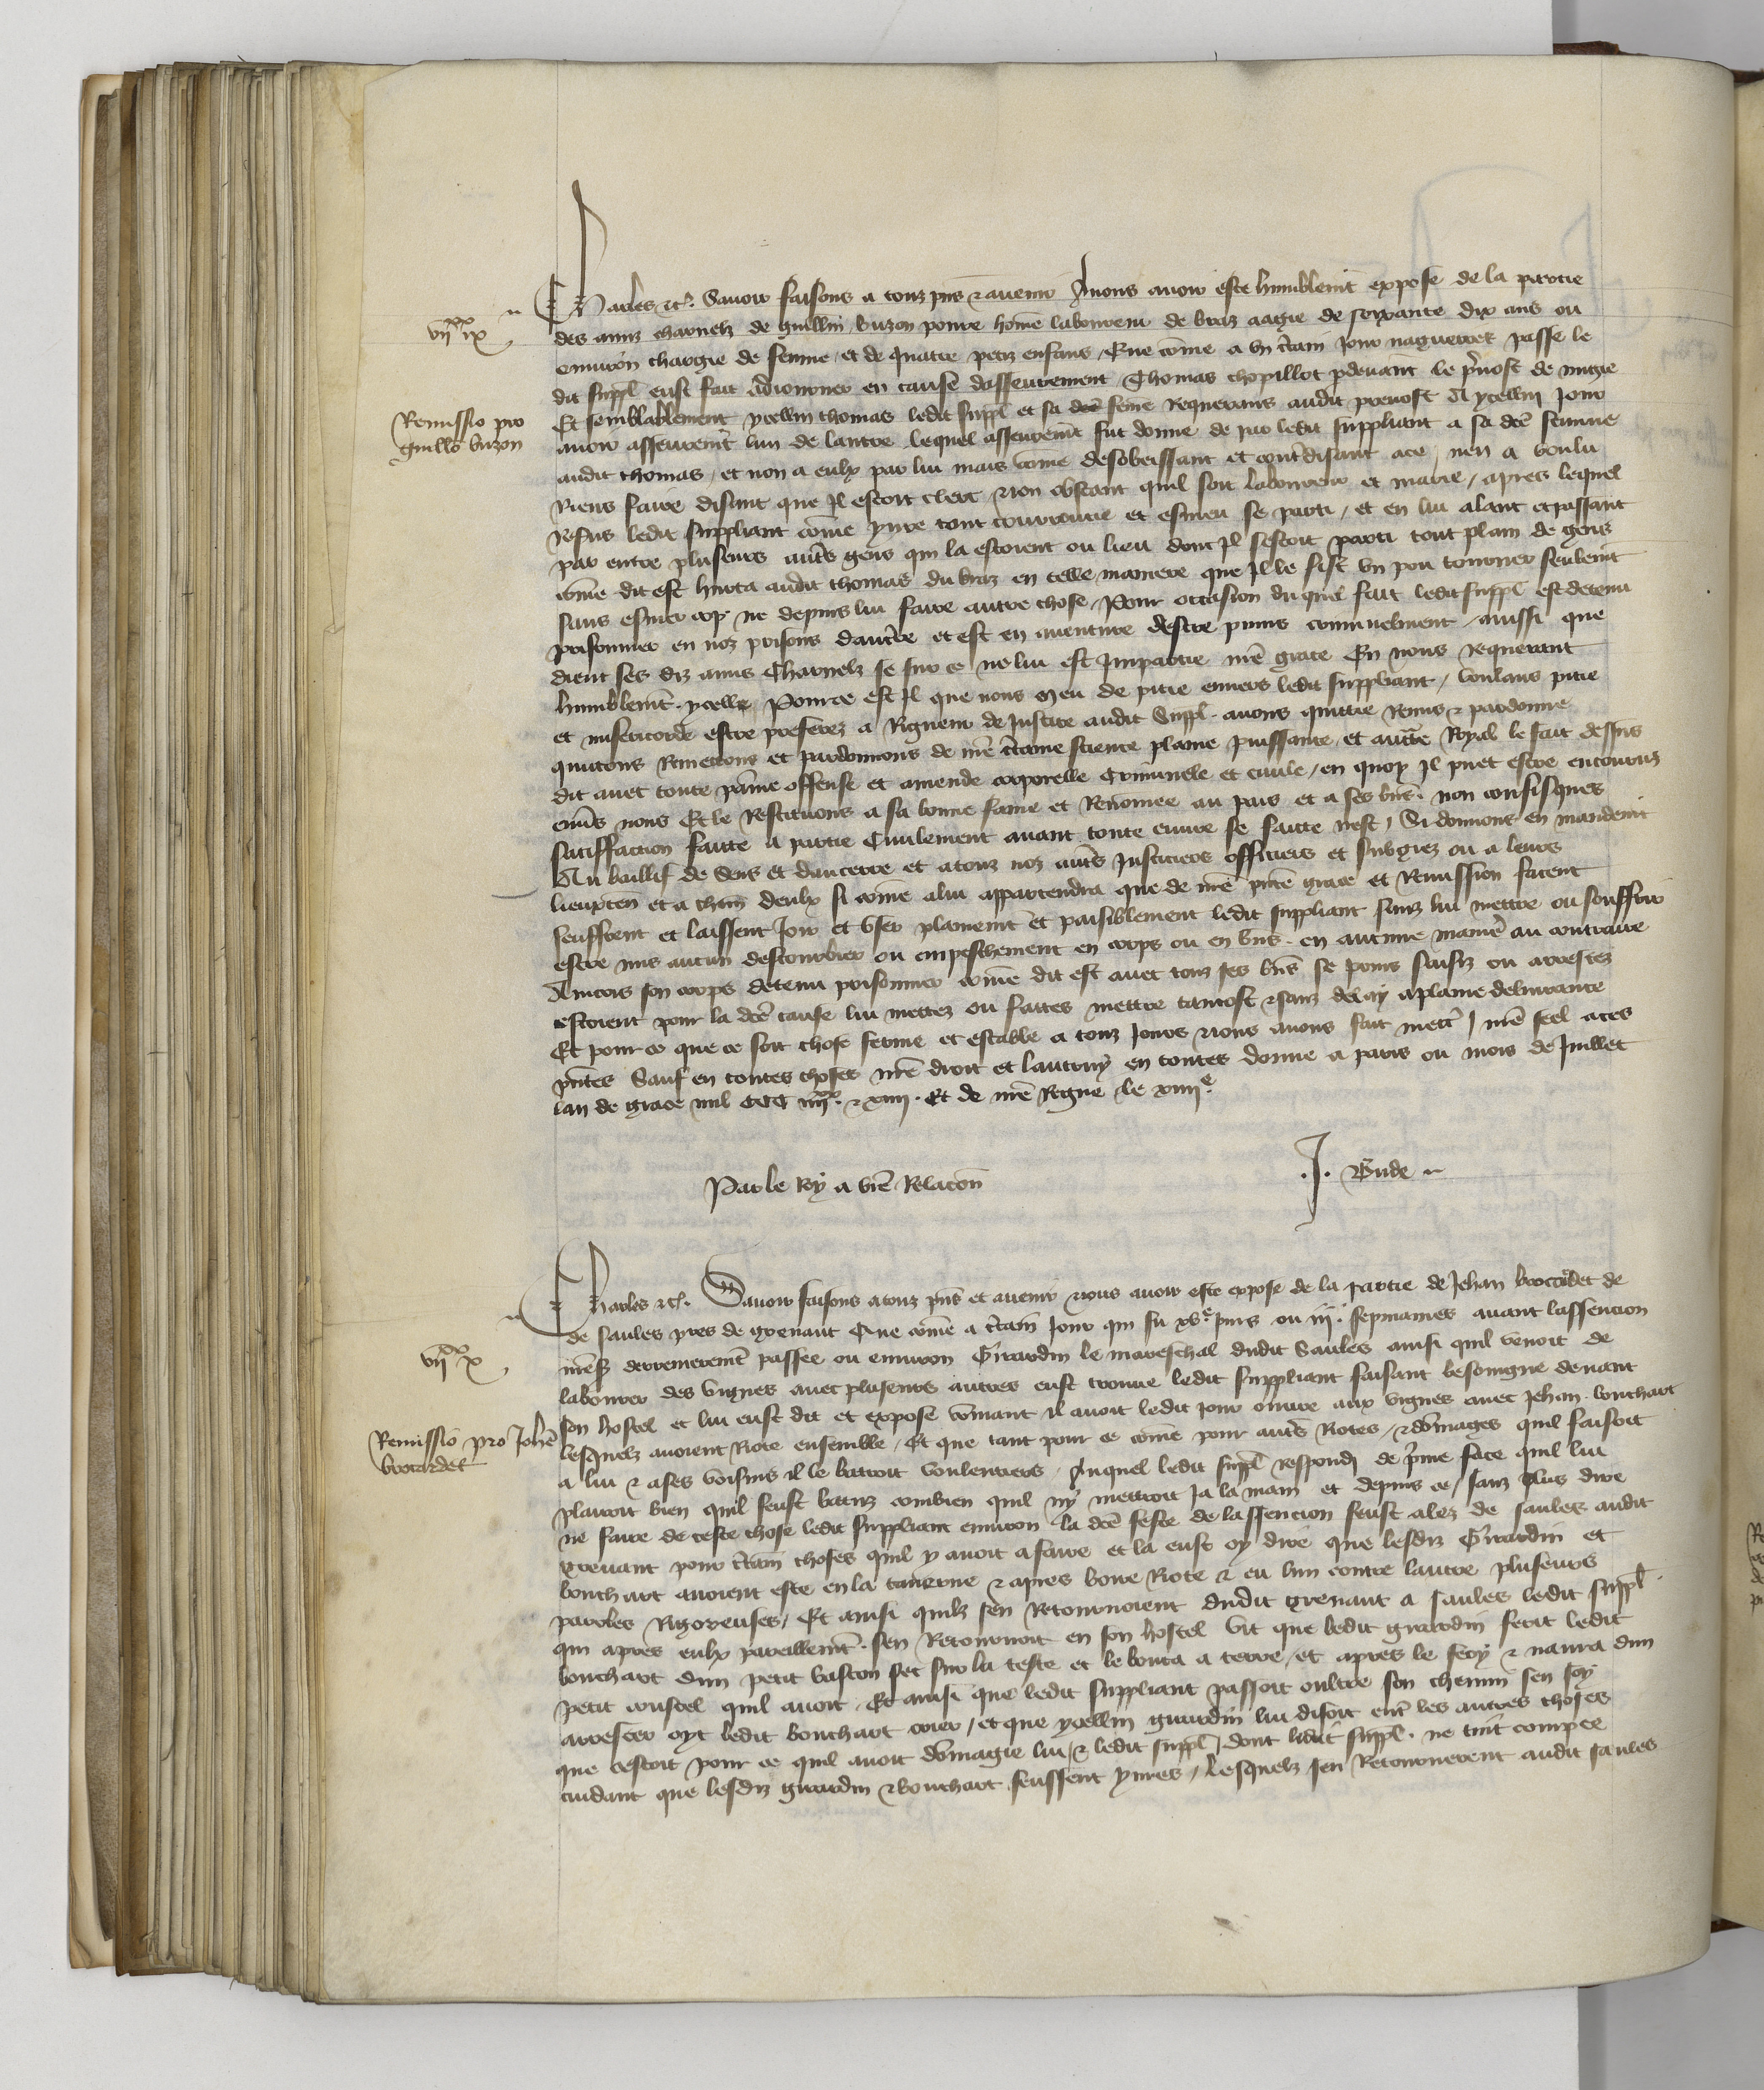 Charles etc. Savoir faisons a touz pns et avenir A nous avoir este humblemt expose de la partie
vii xx ix
des amis charnelz de guillin buzon povre home laboureur de braz aagie de soixante dix ans ou
environ chargie de femme et de quatre petiz enfans Que come a un ctain jour naguerres passe le
dit suppl eust fait adiourner en cause dasseurement Thomas chopillot pdevant le pvost de
Remissio pro
guillo buzon
Et semblablement ycellui thomas ledit suppl et sa feme Requerans audit prevost A ycellui jour
avoir asseuremt lun de lautre lequel asseuremt fut donne de par ledit suppliant a sa dce femme
audit thomas et non a eulx par lui mais come desobeissant et contdisant ace nen a voulu
Riens faire disant que Il estoit clerc non obstant quil soit laboureur et marie apres lequel
Refus ledit suppliant come yvre tout courroucie et esmeu se parti et en lui alant et passant
par entre pluseurs auts gens qui la estoient ou lieu dont Il sestoit parti tout plain de gens
come dit est hurta audit thomas du braz en telle maniere que Il le fist un pou tourner seulemt
sans cop ne depuis lui faire autre chose Pour occasion duquel fait ledit suppl est detenu
prisonnier en noz prisons daucrre et est en aventure destre puniz criminelment aussi que
dient ses diz amis Charnelz se sur ce ne lui est Impartie nre grace En nous Requerant
humblemt ycelle Pource est Il que nous Meu de pitie envers ledit suppliant voulans pitie
et misericorde estre preferez a Rigueur de Justice audit Suppl avons quittie Remis et pardonne
quittons Remettons et pardonnons de nre ctaine science plaine puissance et auctte Royal le fait dessus
dit avec toute paine offense et amende corporelle Criminele et civile en quoy Il puet estre encouruz
envs nous Et le Restituons a sa bonne fame et Renomee au pais et a ses bns non confisques
satiffaction faitte a partie Civilement avant toute euvre se faitte nest Si donnons en mandemt
Au baillif de Sens et daucerre et a touz noz auts Justiciers officiers et subgiez ou a leurs
lieuxten et a chun deulx si come a lui appartendra que de nre pnte grace et Remission facent
seuffrent et laissent Joir et user plainemt et paisiblement ledit suppliant sanz lui mettre ou souffrir
estre mis aucun destourbier ou empeschement en corps ou en bns en aucune manie au contraire
Aincois son corps detenu prisonnier come dit est avec touz ses bns se prins saisiz ou arrestez
estoient pour la dce cause lui mettez ou faites mettre tantost et sanz delay a plaine delivrance
Et pour ce que ce soit chose ferme et estable a touz Jours nous avons fait mectr nre seel a ces
pntes Sauf en toutes choses nre droit et lautruy en toutes donne a paris ou mois de Juillet
lan de grace mil CCC iiii xx et xiiii Et de nre Regne le xiiii e
Par le Roy a vre Relacon
J. Bude
Charles etc. Savoir faisons a touz pns et avenir nous avoir este expose de la partie de Jehan brocardet de
de saules pres de grenant Que come a ctain Jour qui fu xv e Jours ou iii sepmaines avant lassencion
vii xx x
derrenieremt passee ou environ Girardin le mareschal dudit Saules ainsi quil venoit de
labourer des vignes avec pluseurs autres eust trouve ledit suppliant faisant besoingne devant
son hostel et lui eust dit et expose comant il avoit ledit jour ouvre aux vignes avec Jehan bouchart
Remissio pro Johe
brocardet
lesquelz avoient Riote ensemble Et que tant pour ce come pour auts Riotes et domages quil faisoit
a lui et a ses voisins il le battroit voulentiers Auquel ledit suppl respondi de pme face quil lui
plairoit bien quil feust batuz combien quil ny mettroit Ja la main et depuis ce sanz plus dire
ne faire de ceste chose ledit suppliant environ la dce feste de lassencion feust alez de saules audit
grenant pour ctain choses quil y avoit a faire et la eust oy dire que lesdiz Girardin et
bouchart avoient este en la taverne et apres boire Riote et eu lun contre lautre pluseurs
paroles Rigoreuses Et ainsi quilz sen Retournoient dudit grenant a saules ledit suppl
qui apres eulx pareillemt sen Retournoit en son hostel vit que ledit girardin ferit ledit
bouchart dun petit baston sec sur la teste et le bouta a terre et apres le fery et navra dun
petit coustel quil avoit Et ainsi que ledit suppliant passoit oultre son chemin sen soy
arrester oyt ledit bouchart crier et que ycellui girardin lui disoit ent les autres choses
que cestoit pour ce quil avoit domagie lui et ledit suppl dont ledit suppl ne tint compte
cuidant que lesdiz girardin et bouchart feussent yvres lesquelz sen Retournerent audit saules